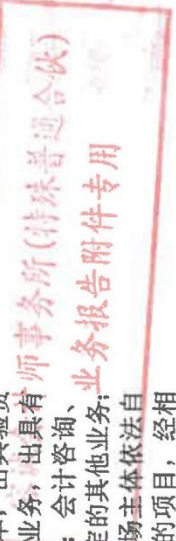 件，出具验资
业务，出具有
；会计咨询、
定的其他业务；
场主体依法自
的项目，经相
师事务所(特殊普通合伙)
业务报告附件专用